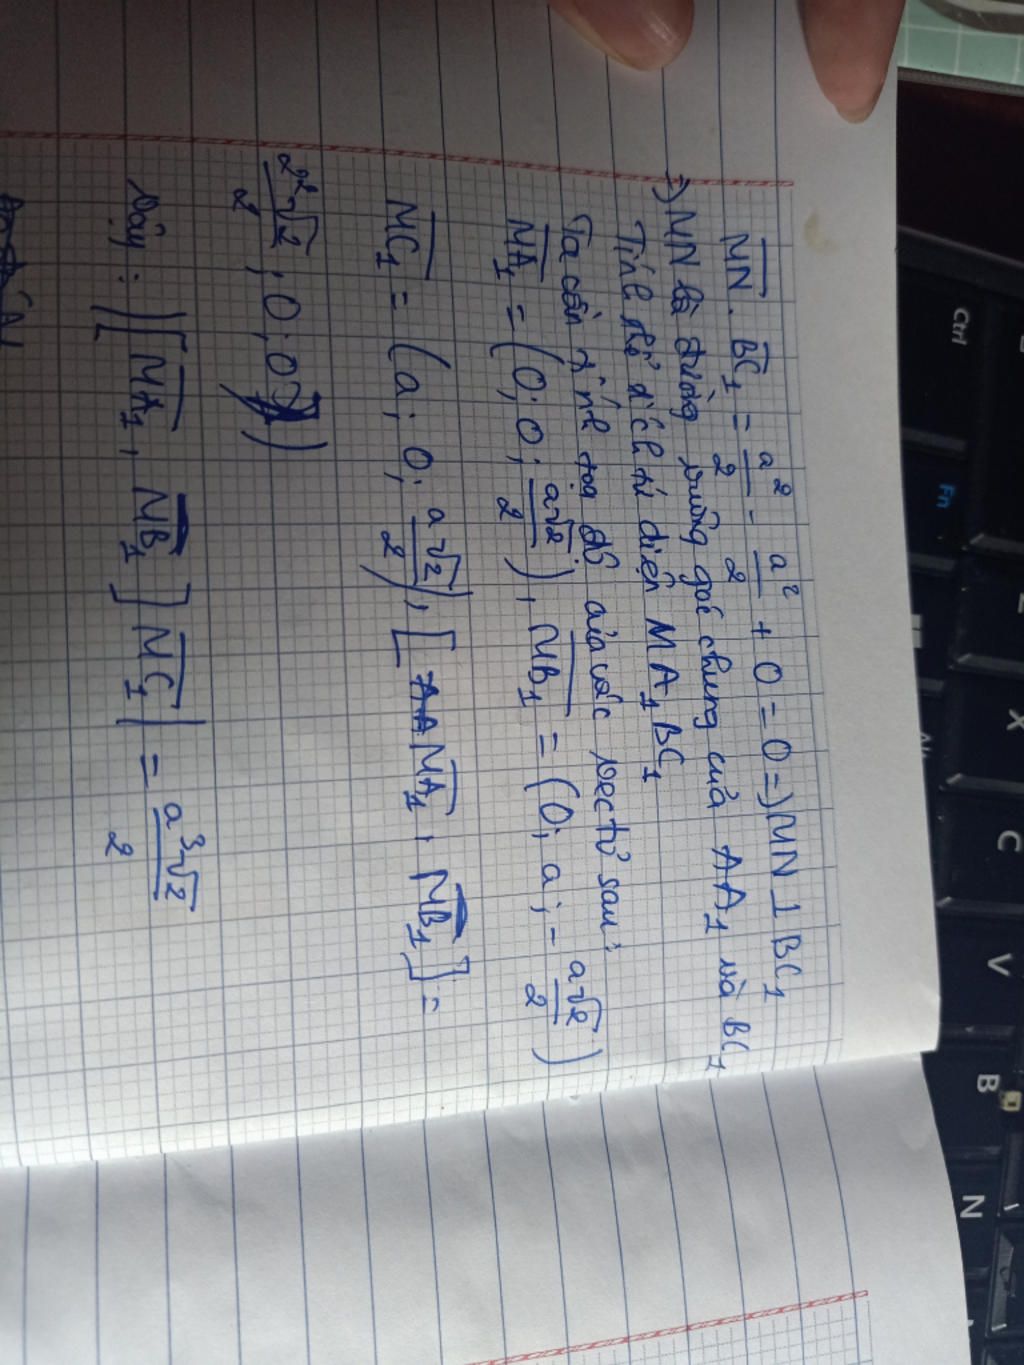 MN. BC₁ = a²/2 - a²/2 + 0 = 0 => MN ⊥ BC₁
=> MN là đường vuông góc chung của AA₁ và BC₁
Tính thể tích tứ diện MA₁BC₁
Ta cần tính tọa độ của các vectơ sau:
MA₁ = (0; 0; a√2/2), MB₁ = (0; a; - a√2/2)
MC₁ = (a; 0; a√2/2), [MA₁, MB₁] =
a²√2/2; 0; 0)
Vậy: |[MA₁, MB₁] MC₁| = a³√2/2
Ctrl
Fn
X
C
V
B
N